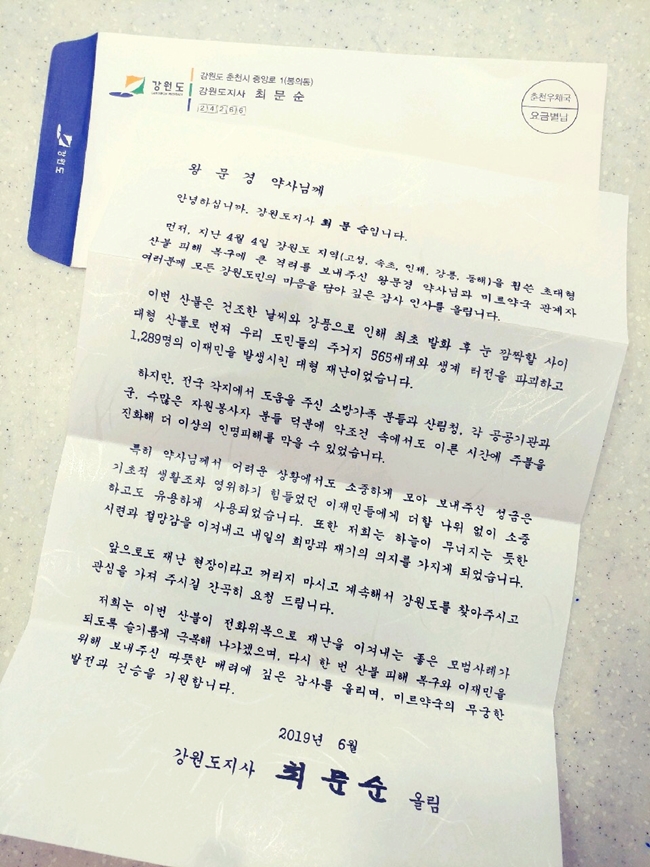 강원도
강원도 춘천시 중앙로 1(봉의동)
강원도지사 최문순
24266
춘천우체국
요금별납
강원도
왕문경 약사님께
안녕하십니까. 강원도지사 최문순입니다.
먼저, 지난 4월 4일 강원도 지역(고성, 속초, 인제, 강릉, 동해)을 휩쓴 초대형
산불 피해 복구에 큰 격려를 보내주신 왕문경 약사님과 미르약국 관계자
여러분께 모든 강원도민의 마음을 담아 깊은 감사 인사를 올립니다.
이번 산불은 건조한 날씨와 강풍으로 인해 최초 발화 후 눈 깜짝할 사이
대형 산불로 번져 우리 도민들의 주거지 565세대와 생계 터전을 파괴하고
1,289명의 이재민을 발생시킨 대형 재난이었습니다.
하지만, 전국 각지에서 도움을 주신 소방가족 분들과 산림청, 각 공공기관과
군, 수많은 자원봉사자 분들 덕분에 악조건 속에서도 이른 시간에 주불을
진화해 더 이상의 인명피해를 막을 수 있었습니다.
특히 약사님께서 어려운 상황에서도 소중하게 모아 보내주신 성금은
기초적 생활조차 영위하기 힘들었던 이재민들에게 더할 나위 없이 소중
하고도 유용하게 사용되었습니다. 또한 저희는 하늘이 무너지는 듯한
시련과 절망감을 이겨내고 내일의 희망과 재기의 의지를 가지게 되었습니다.
앞으로도 재난 현장이라고 꺼리지 마시고 계속해서 강원도를 찾아주시고
관심을 가져 주시길 간곡히 요청 드립니다.
저희는 이번 산불이 전화위복으로 재난을 이겨내는 좋은 모범사례가
되도록 슬기롭게 극복해 나가겠으며, 다시 한 번 산불 피해 복구와 이재민을
위해 보내주신 따뜻한 배려에 깊은 감사를 올리며, 미르약국의 무궁한
발전과 건승을 기원합니다.
2019년 6월
강원도지사 최문순 올림